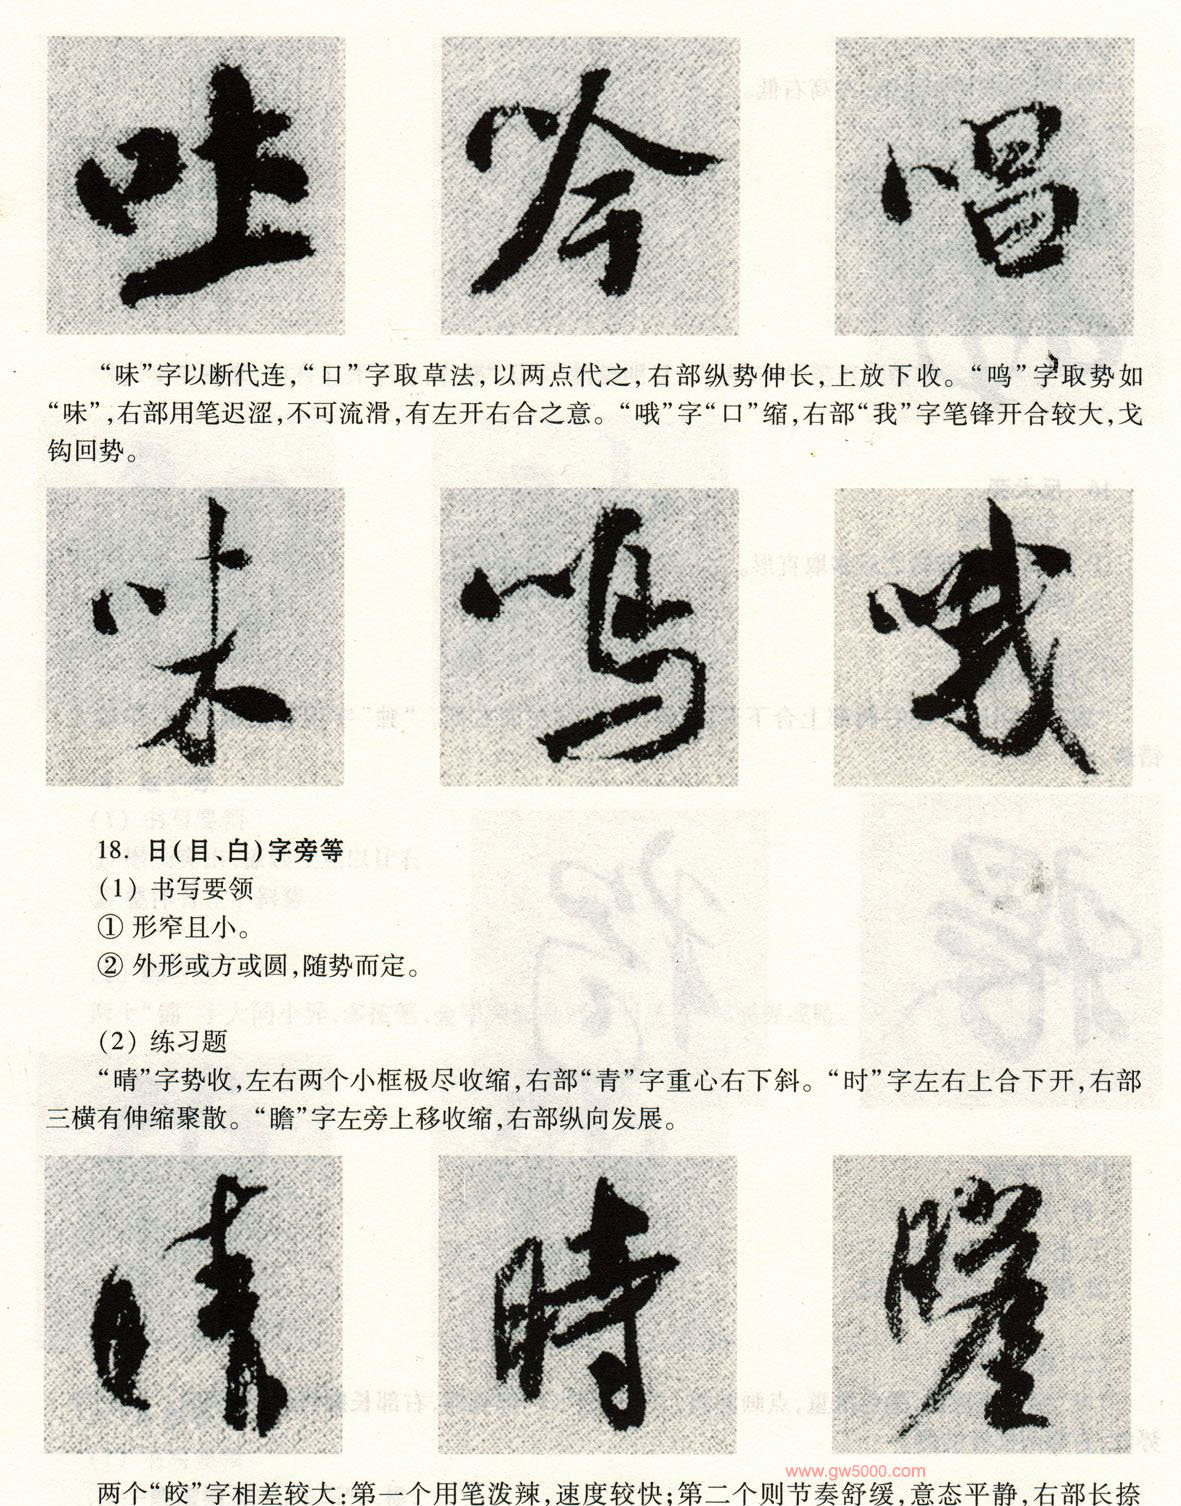 吐 吟 唱
“味”字以断代连,“口”字取草法,以两点代之,右部纵势伸长,上放下收。“鸣”字取势如
“味”,右部用笔迟涩,不可流滑,有左开右合之意。“哦”字“口”缩,右部“我”字笔锋开合较大,戈
钩回势。
味 鳴 哦
18. 日(目、白)字旁等
(1) 书写要领
① 形窄且小。
② 外形或方或圆,随势而定。
(2) 练习题
“晴”字势收,左右两个小框极尽收缩,右部“青”字重心右下斜。“时”字左右上合下开,右部
三横有伸缩聚散。“瞻”字左旁上移收缩,右部纵向发展。
晴 時 瞻
www.gw5000.com
两个“皎”字相差较大:第一个用笔泼辣,速度较快;第二个则节奏舒缓,意态平静,右部长捺